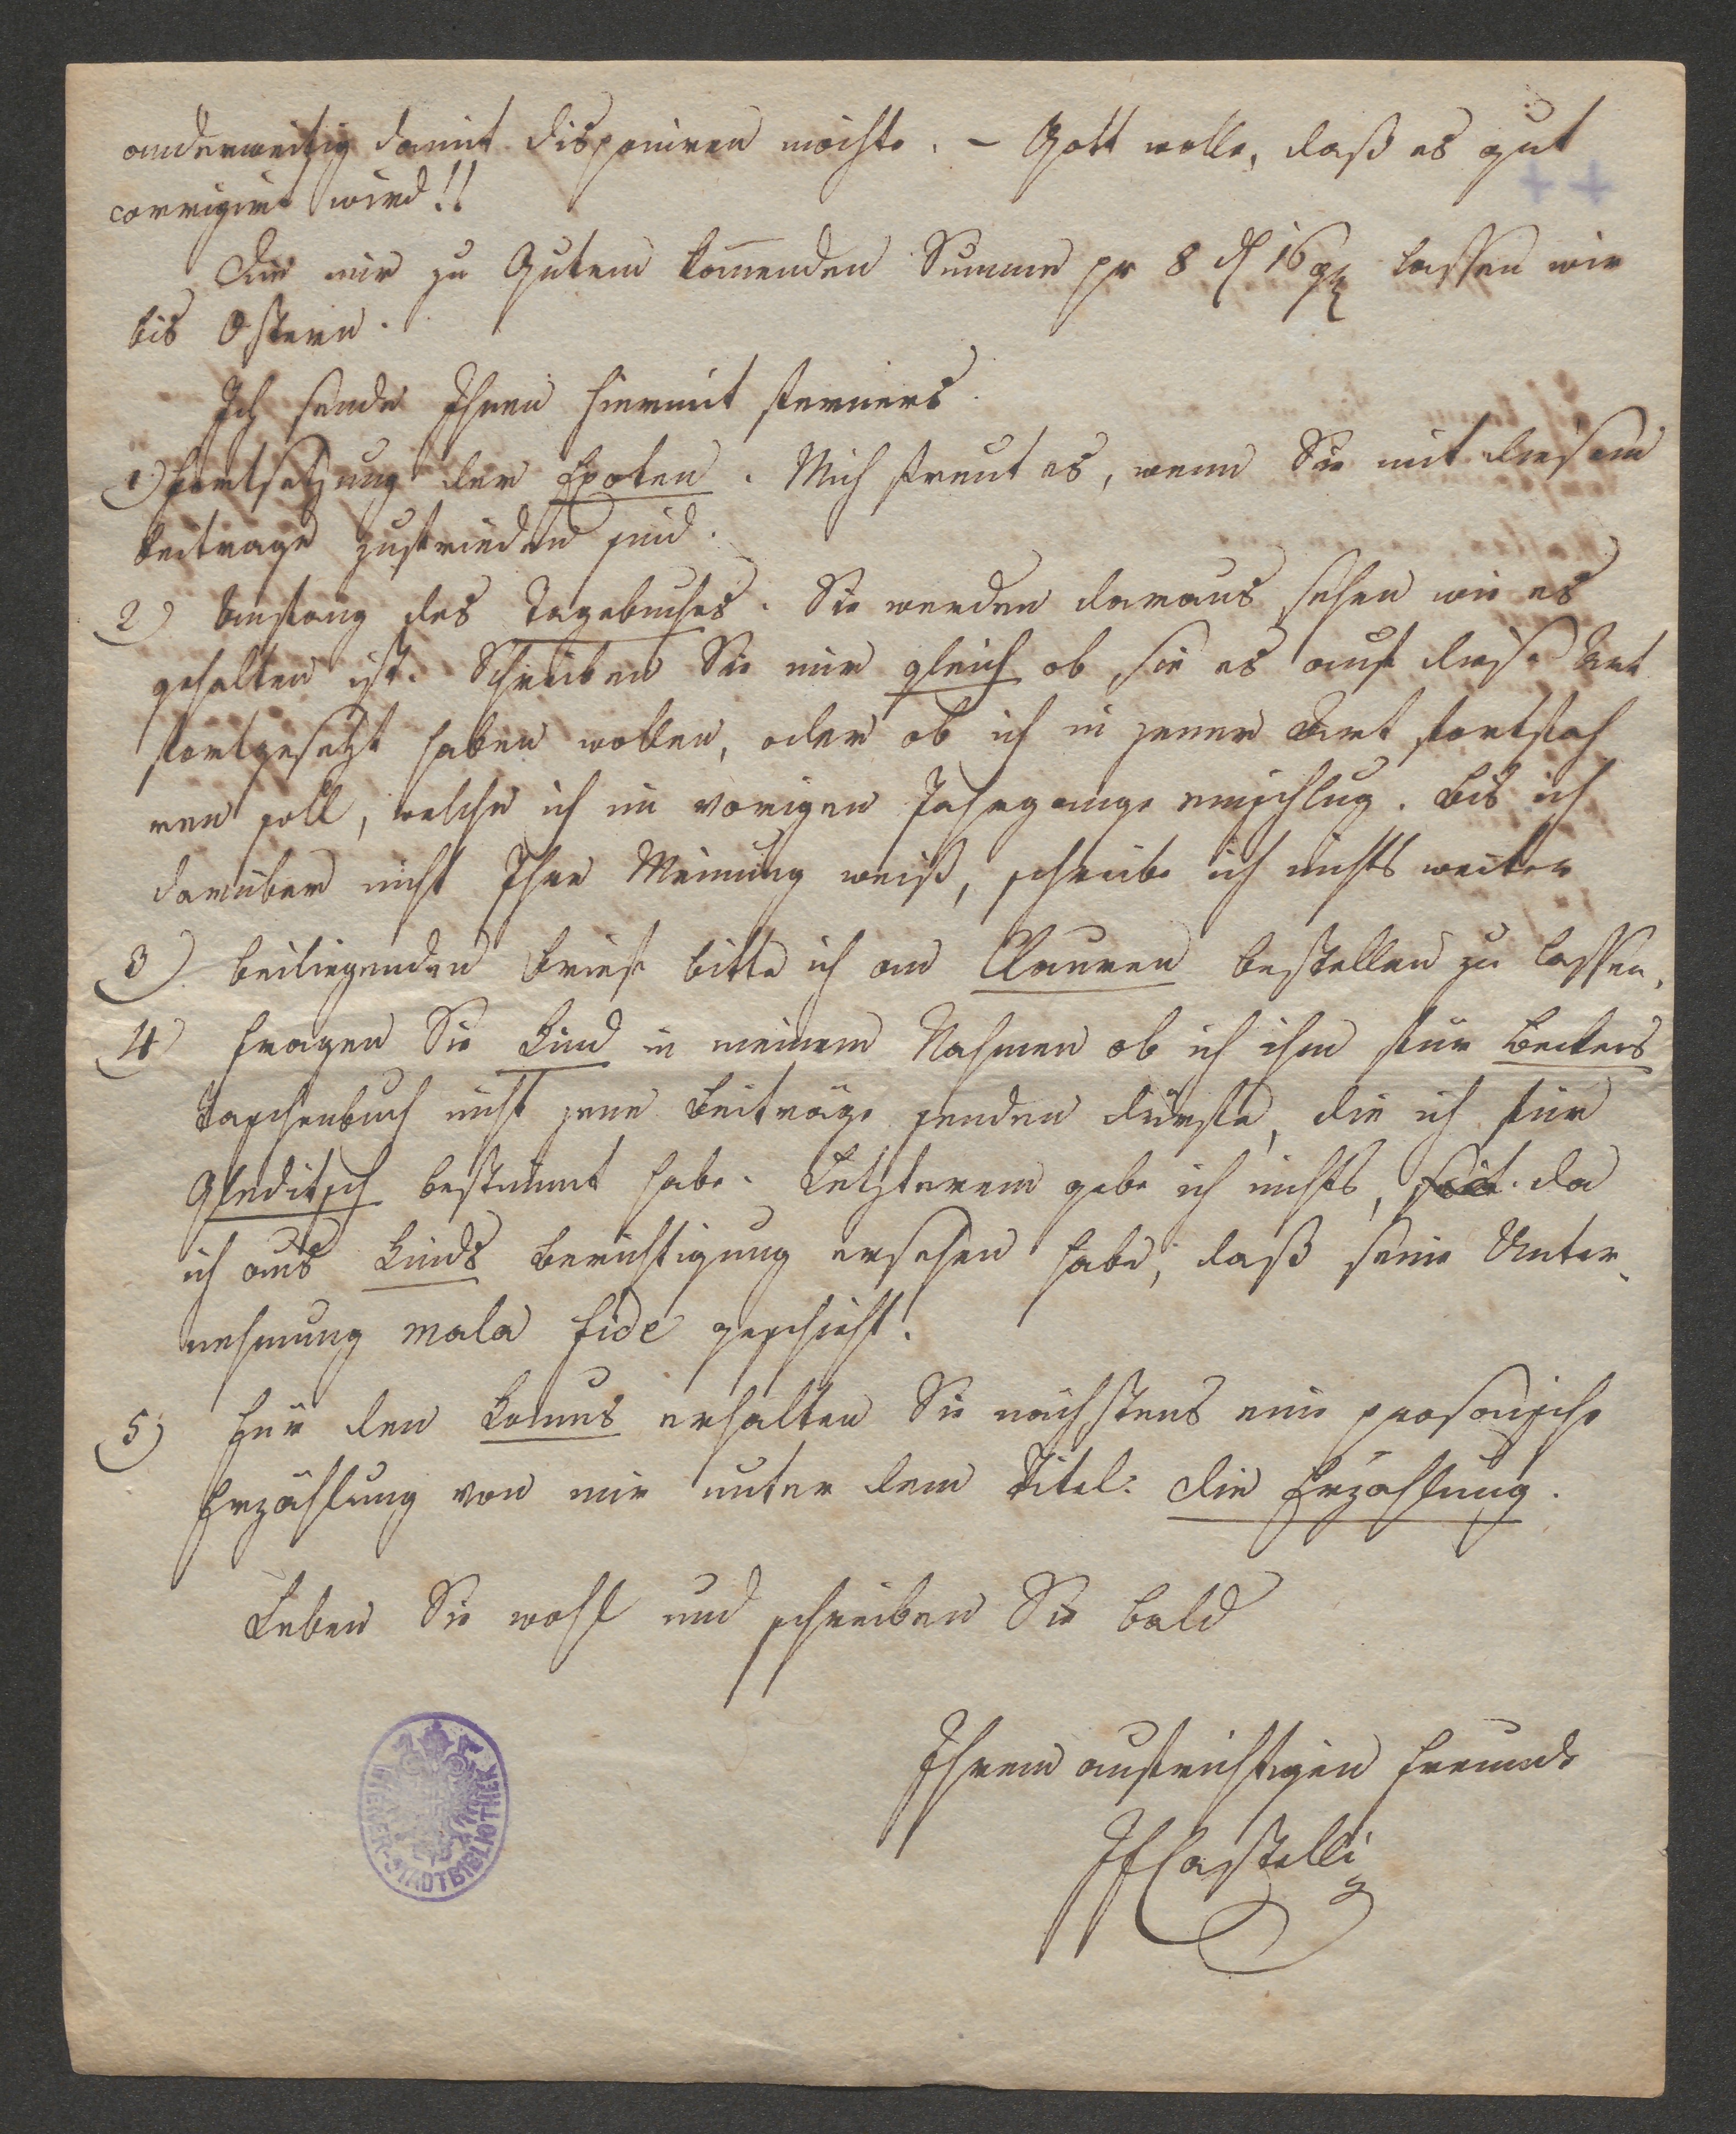 anderweitig damit disponiren möchte. – Gott wolle, daß es gut
corrigirt wird!!
Die mir zu Gutem kom̄enden Summe pr 8 rh 16 gr lassen wir
bis Ostern.
Ich sende Ihnen hiermit ferners
1) Fortsetzung der Exoten. Mich freut es, wenn Sie mit diesem
Beitrage zufrieden sind.
2) Anfang des Tagebuches. Sie werden daraus sehen wie es
gehalten ist. Schreiben Sie mir gleich ob sie es auf diese Art
fortgesetzt haben wollen, oder ob ich in jener Art fortfah
ren soll, welche ich im vorigen Jahrgange einschlug. Bis ich
darüber nicht Ihre Meinung weiß, schreibe ich nichts weiter
3) Beiliegenden Brief bitte ich an Clauren bestellen zu lassen.
4) Fragen Sie Kind in meinem Nahmen ob ich ihm für Beckers
Taschenbuch nicht jene Beiträge senden dürfte, die ich für
Gleditsch bestimmt habe. Letzterem gebe ich nichts, da
ich aus Kinds Berichtigung ersehen habe, daß seine Unter-
nehmung mala fide geschieht.
5) Für den Komus erhalten Sie nächstens eine prosaische
Erzählung von mir unter dem Titel: die Erzählung.
Leben Sie wohl und schreiben Sie bald
Ihrem aufrichtigen Freunde
JFCastelli
WIENER STADTBIBLIOTHEK
++